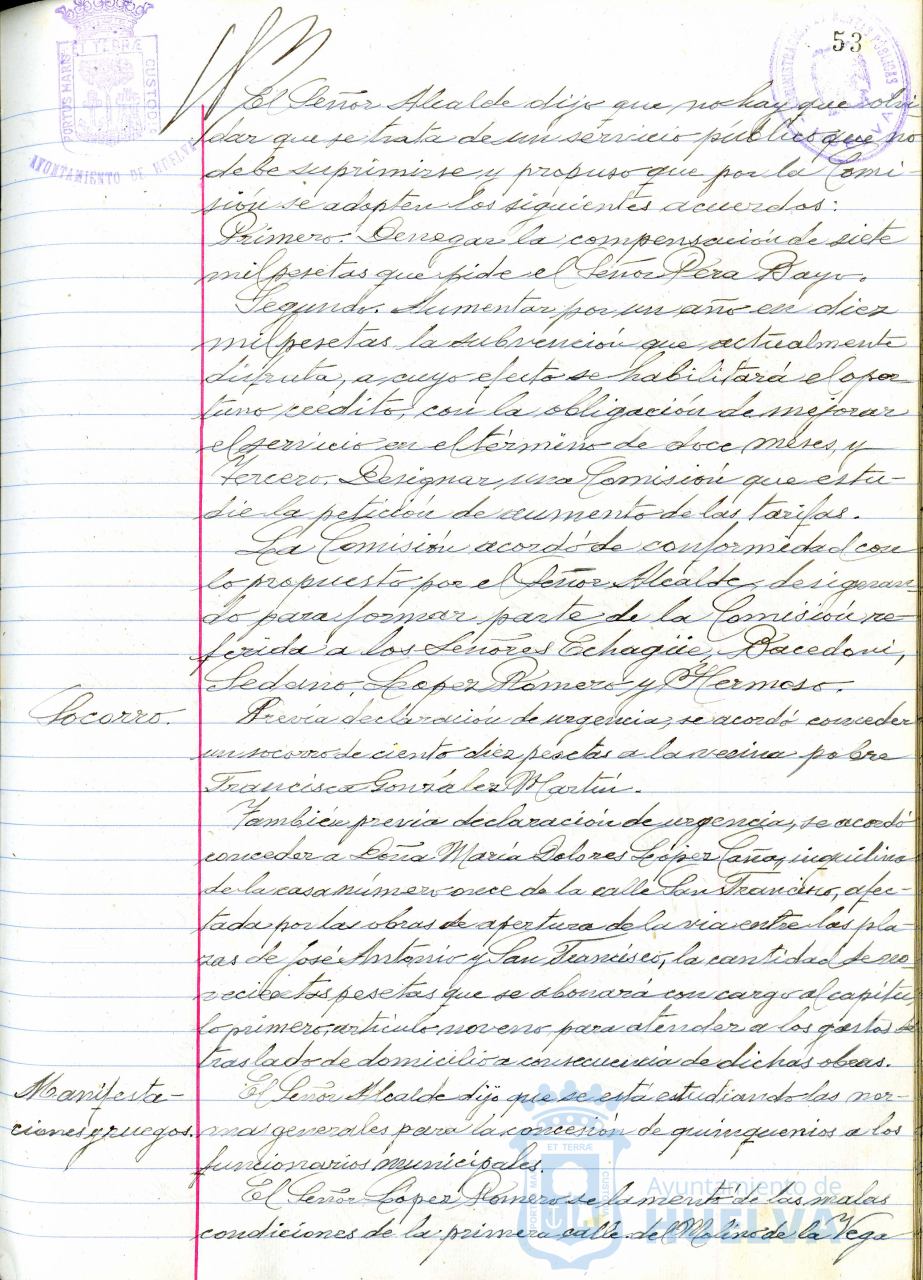 53
PORTUS MARIS ET TERRÆ CUSTODIA
AYUNTAMIENTO DE HUELVA
El Señor Alcalde dijo que no hay que olvi
dar que se trata de un servicio público que no
debe suprimirse y propuso que por la Comi-
sión se adopten los siguientes acuerdos:
Primero. Denegar la compensación de siete
mil pesetas que pide el Señor Pera Bayo.
Segundo. Aumentar por un año en diez
mil pesetas la subvención que actualmente
disfruta, a cuyo efecto se habilitará el opor-
tuno crédito, con la obligación de mejorar
el servicio en el término de doce meses, y
Tercero. Designar una Comisión que estu-
die la petición de aumento de las tarifas.
La Comisión acordó de conformidad con
lo propuesto por el Señor Alcalde, designan-
do para formar parte de la Comisión re-
ferida a los Señores Echagüe, Bacedoni,
Sedano, López Romero y Hermoso.
Socorro.
Previa declaración de urgencia, se acordó conceder
un socorro de ciento diez pesetas a la vecina pobre
Francisca González Martín.
También previa declaración de urgencia, se acordó
conceder a Doña María Dolores López Caña, inquilino
de la casa número once de la calle San Francisco, afec-
tada por las obras de apertura de la via entre las pla-
zas de José Antonio y San Francisco, la cantidad de no-
vecientas pesetas que se abonará con cargo al capítu-
lo primero, artículo noveno, para atender a los gastos de
traslado de domicilio a consecuencia de dichas obras.
Manifesta-
ciones y ruegos.
El Señor Alcalde dijo que se está estudiando las nor-
ma generales para la concesión de quinquenios a los
funcionarios municipales.
El Señor López Romero se lamentó de las malas
condiciones de la primera calle del Molino de la Vega
Ayuntamiento de
HUELVA